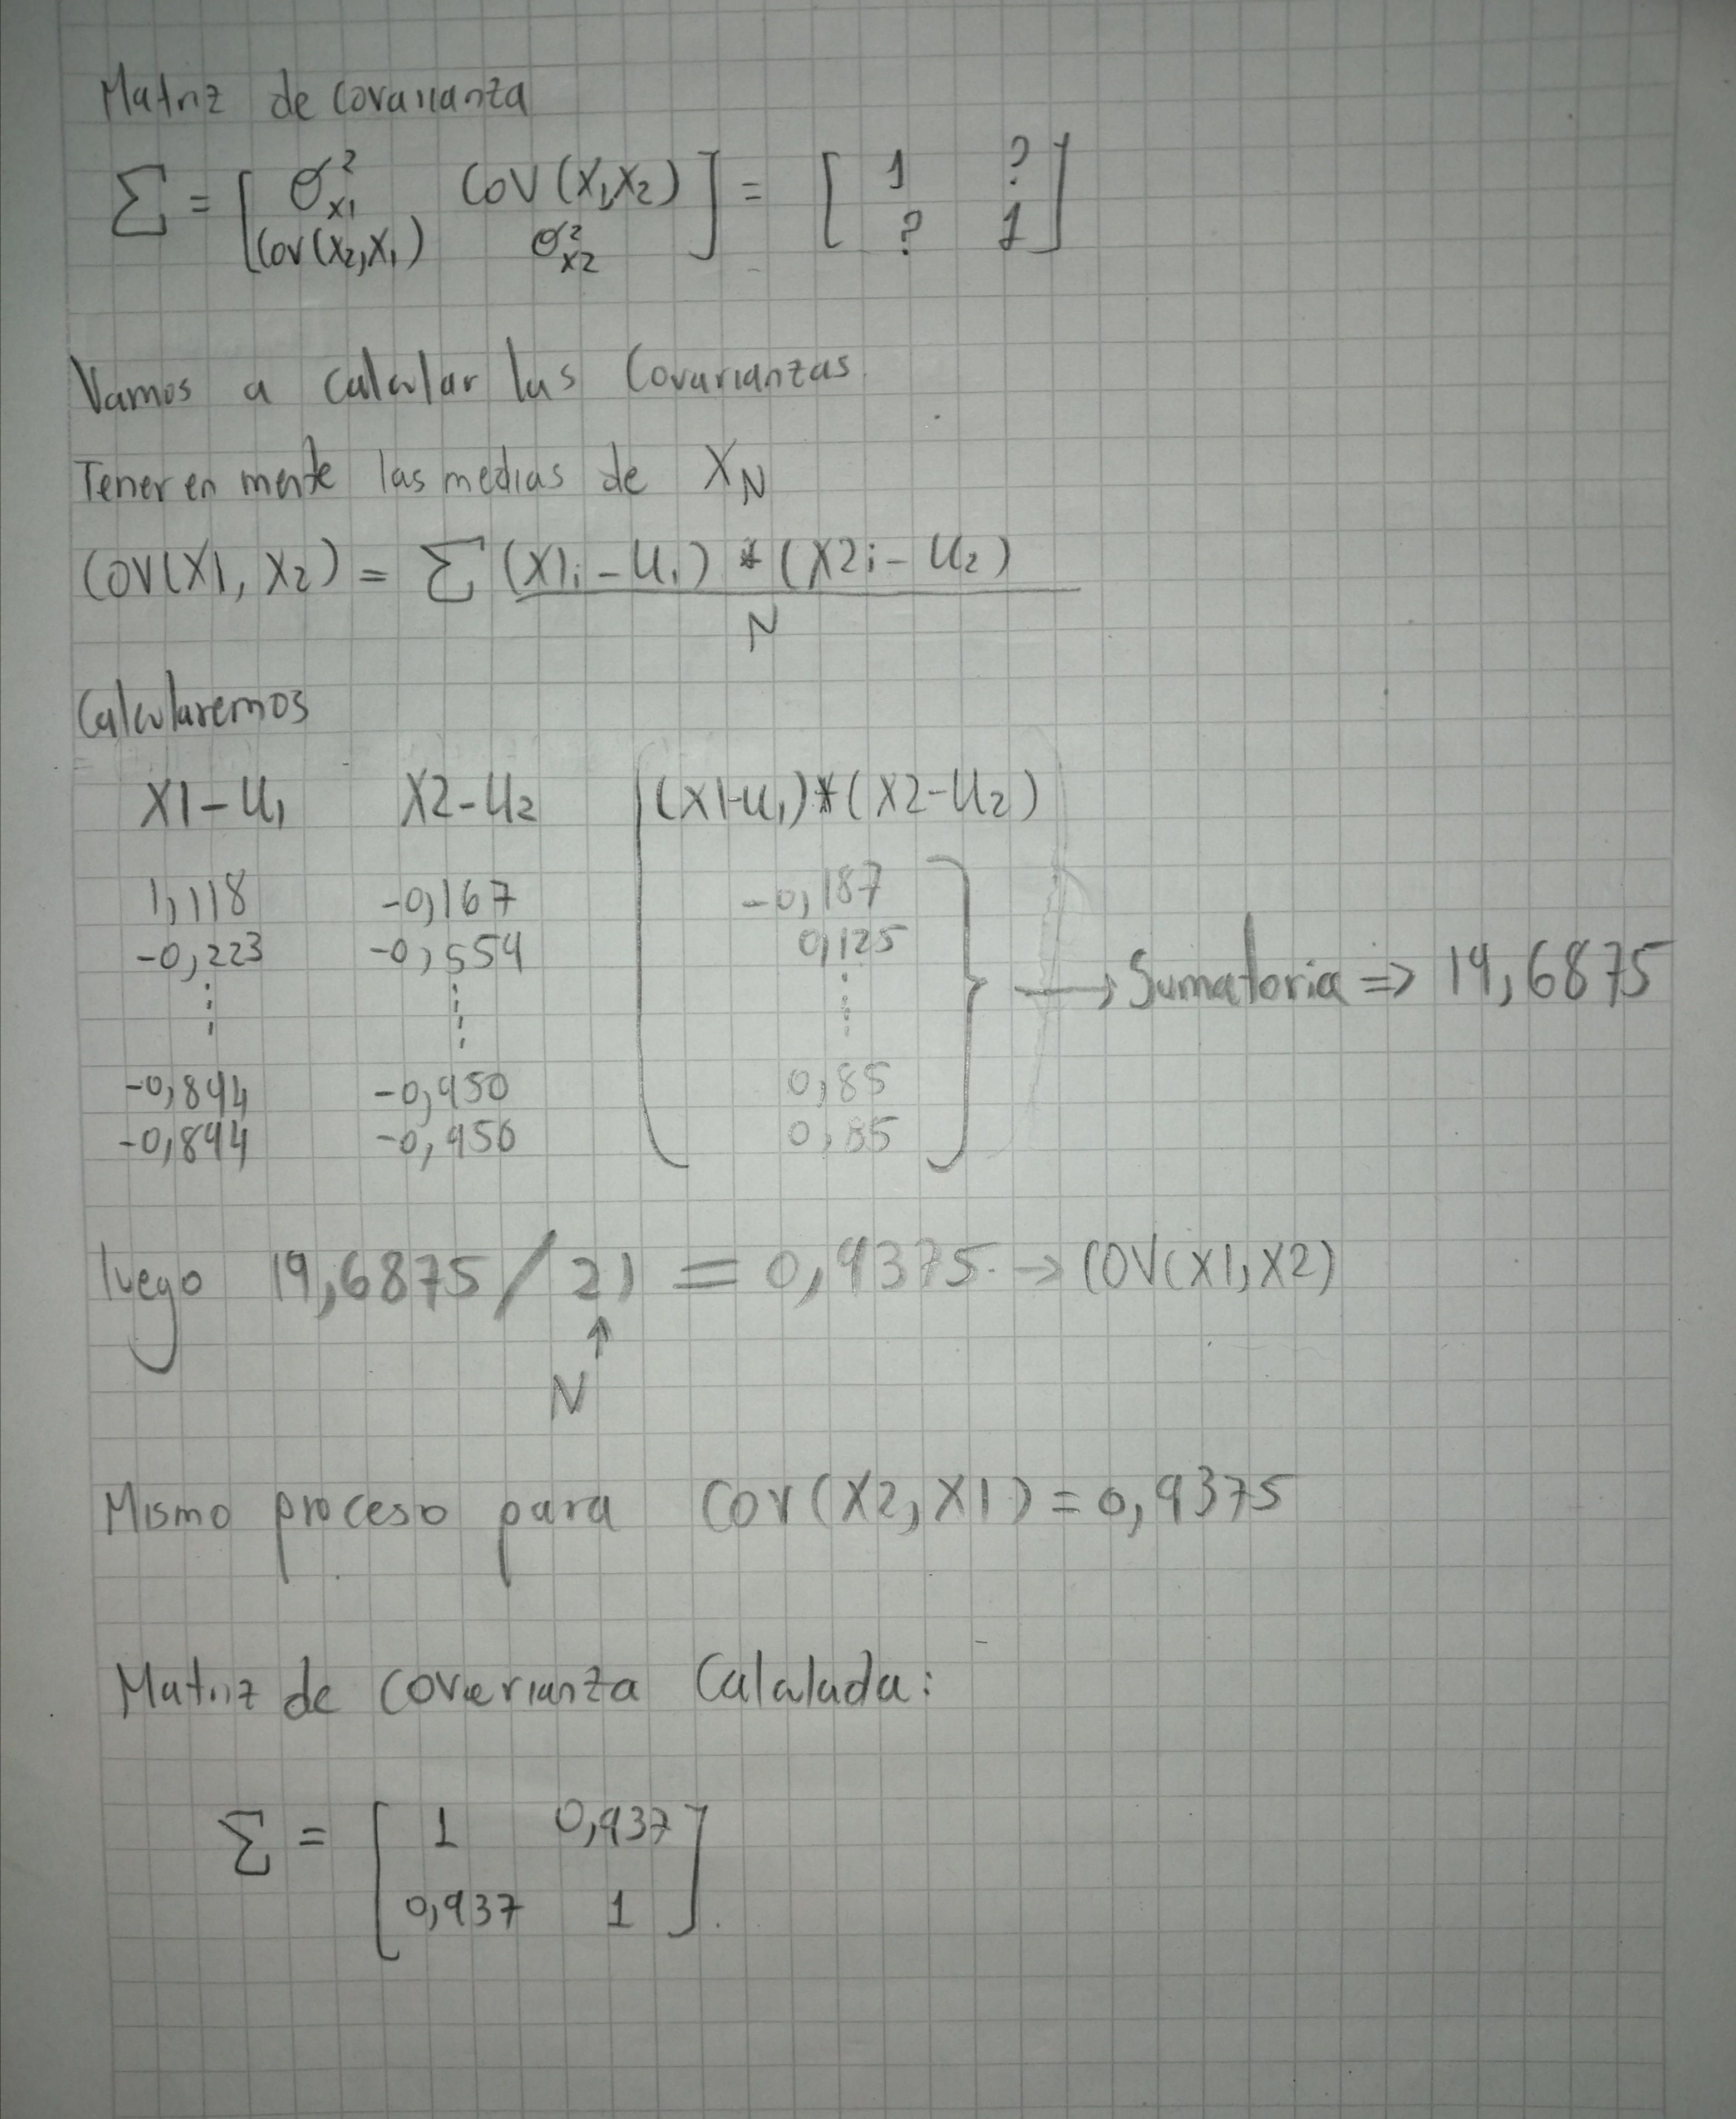 Matriz de Covarianza
Σ = [ σ²x1 Cov(X1,X2) ] = [ 1 ? ]
[ Cov(X2,X1) σ²x2 ] [ ? 1 ]
Vamos a calcular las Covarianzas.
Tener en mente las medias de XN
COV(X1, X2) = Σ (X1i - U1) * (X2i - U2)
N
Calcularemos
X1-U1 X2-U2 (X1-U1)*(X2-U2)
1,118 -0,167 -0,187
-0,223 -0,554 0,125 → Sumatoria => 19,6875
⋮ ⋮ ⋮
-0,894 -0,950 0,85
-0,894 -0,950 0,85
luego 19,6875 / 21 = 0,9375 → COV(X1,X2)
↑
N
Mismo proceso para Cov(X2,X1) = 0,9375
Matriz de covarianza Calculada:
Σ = [ 1 0,937 ]
[ 0,937 1 ].